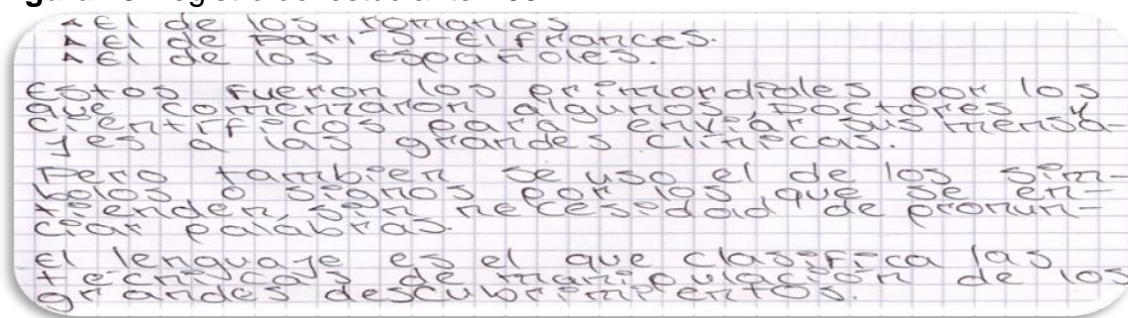 ▲ El de los romanos
▲ El de París-El frances.
▲ El de los españoles.
Estos fueron los primordiales por los
que comenzaron algunos, Doctores y
cientificos para enviar sus mensa-
jes a las grandes clinicas.
Pero tambien se uso el de los sim-
bolos o signos por los que se en-
tienden, sin necesidad de pronun-
ciar palabras.
El lenguaje es el que clasifica las
tecnicas de manipulación de los
grandes descubrimientos.